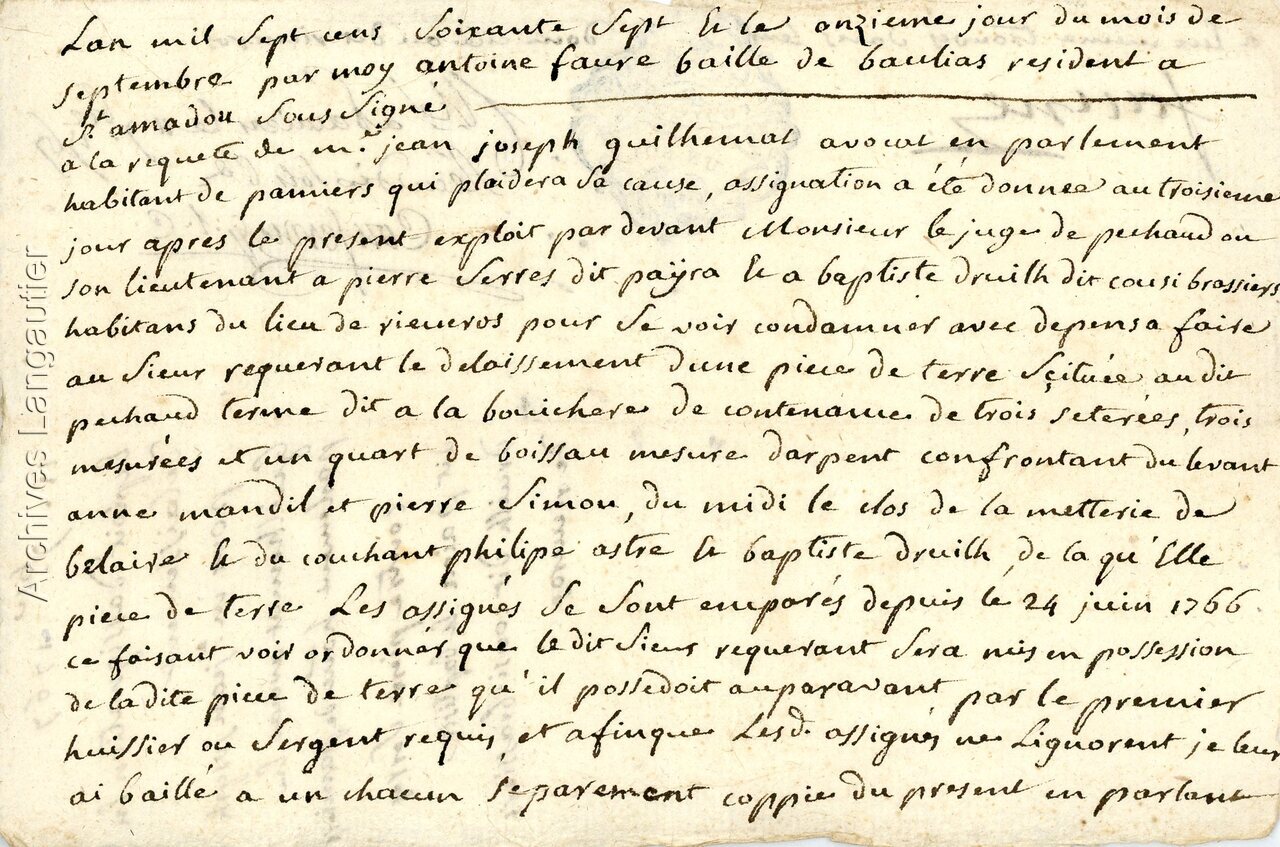 Lan mil Sept cens Soixante Sept & le onzieme jour du mois de
septembre par moy antoine faure baille de baulias resident a
St amadou Sous Signé
a la requete de me. jean joseph guilhemat avocat en parlement
habitant de pamiers qui plaidera Sa cause, assignation a été donnee au troisieme
jour apres le present exploit par devant Monsieur le juge de pechaud ou
son lieutenant a pierre Serres dit payra & a baptiste druilh dit cousi brassiers
habitans du lieu de rieucros pour Se voir condamner avec depens a faire
au Sieur requerant le delaissement dune piece de terre Sçituée au dit
pechaud terme dit a la bouichere de contenance de trois seterées, trois
mesurées et un quart de boissau mesure darpent confrontant du levant
anne mandil et pierre Simou, du midi le clos de la metterie de
belaire & du couchant philipe astre & baptiste druilh, de la qu'Elle
piece de terre Les assignés Se Sont emparés depuis le 24 juin 1766
ce faisant voir ordonner que le dit Sieur requerant Sera mis en possession
de la dite piece de terre qu'il possedoit auparavant par le premier
huissier ou Sergent requis, et afinque Lesd. assignés ne Lignorent je leur
ai baillé a un chacun séparement coppie du present en parlant
Archives Langautier